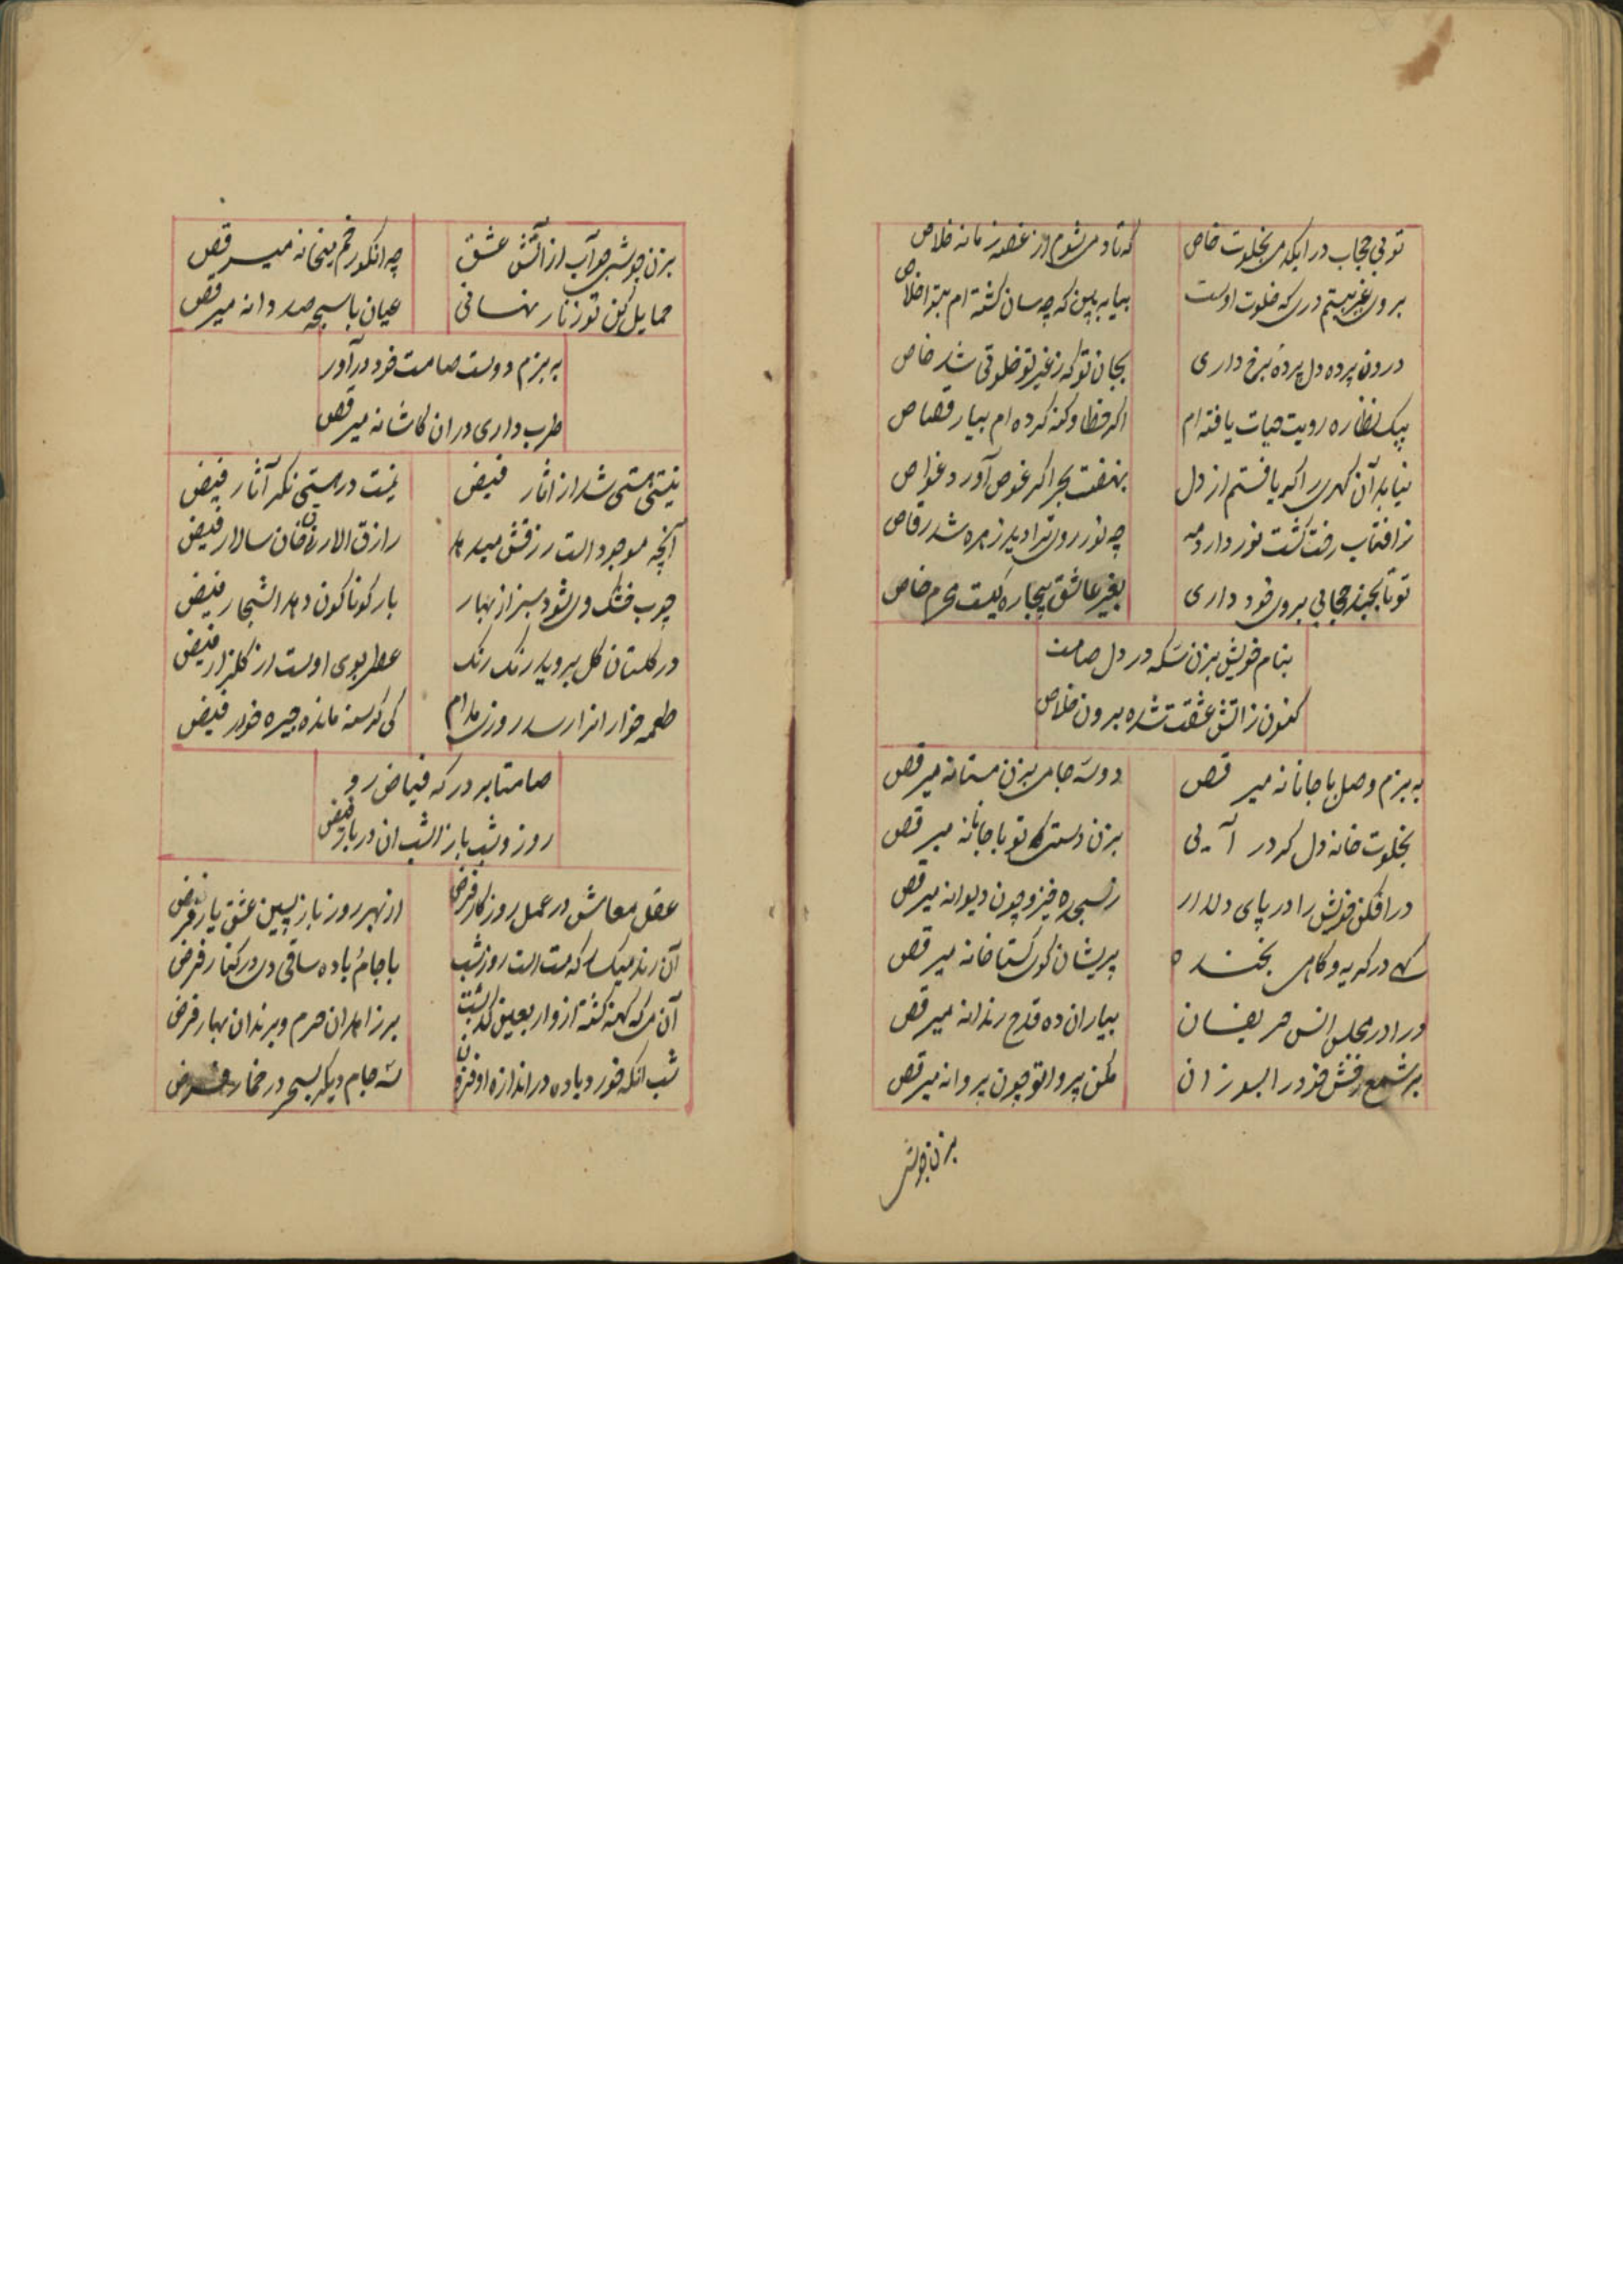 تو بی حجاب درا یکدمی بخلوت خاص
که تا دمی شوم از غصه زمانه خلاص
بروی غیر ببستم دری که خلوت اوست
بیا ببین که چه سان کشته ام بتو اخلاص
درون پرده دل پرده برخ داری
بجان تو که ز غیر تو خلوتی شد خاص
بیک نظاره رویت حیات یافته ام
اکر خطا وکنه کرده ام بیار قصاص
نیابد آن کهری را که یافتم از دل
بهفت بحر اکر غوص آورد غواص
ز افتاب رخت کشت نور دارد مه
چه نور روی ترا دید زهره شد رقاص
تو تا بچند حجابی بروی خود داری
بغیر عاشق بیچاره کیست محرم خاص
بنام خویش بزن سکه در دل صامت
کنون ز اتش عشقت شده برون خلاص
به بزم وصل با جانانه میرقص
دوسه جامی بزن مستانه میرقص
بخلوت خانه دل کر در آیی
بزن دستی که تو با جانانه میرقص
در افکن خویش را در پای دلدار
ز سجده خیز و چون دیوانه میرقص
کهی در کریه و کاهی بخنده
پریشان کوی کستاخانه میرقص
درا در مجلس انس حریفان
بیاران ده قدح رندانه میرقص
بر شمع رخش خود را بسوزان
مکن پروا تو چون پروانه میرقص
بزن جوشی
بزن جوشی چو آب از آتش عشق
چه انکور خم میخانه میرقص
حمایل کن تو زنار نهانی
عیان با سبحه صد دانه میرقص
به بزم دوست صامت خود درآور
طرب داری در ان کاشانه میرقص
نیستی هستی شد از اثار فیض
نیست در هستی نکر آثار فیض
آنچه موجود است رزقش میدهد
رازق الارزاق خان سالار فیض
چوب خشک می شود سبز از بهار
بار کوناکون دهد اشجار فیض
در کلستان کل بروید رنک رنک
عطر بوی اوست از کلزار فیض
طعمه خواران را رسد روزی مدام
کی کرسنه مانده جیره خور فیض
صامتا بر درکه فیاض رو
روز و شب باز است ان دربار فیض
عقل معاش در عمل روزکار فرض
از بهر روز بازپسین عشق یار فرض
آن رند میکسار که مست است روز شب
با جام باده ساقی در کنار فرض
آن می که کهنه کشته از و اربعین کذشت
بر زاهدان حرم و برندان بهار فرض
شب انکه خورد باده در اندازه او فزون
سه جام دیکر سحر در خمار فرض